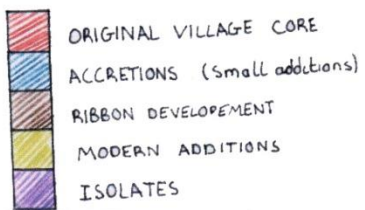 ORIGINAL VILLAGE CORE
ACCRETIONS (Small additions)
RIBBON DEVELOPEMENT
MODERN ADDITIONS
ISOLATES